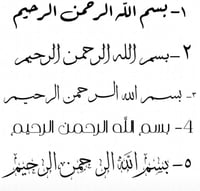 ١- بسم الله الرحمن الرحيم
٢- بسم الله الرحمن الرحيم
٣- بسم الله الرحمن الرحيم
4- بسم الله الرحمن الرحيم
٥- بسم الله الرحمن الرحيم